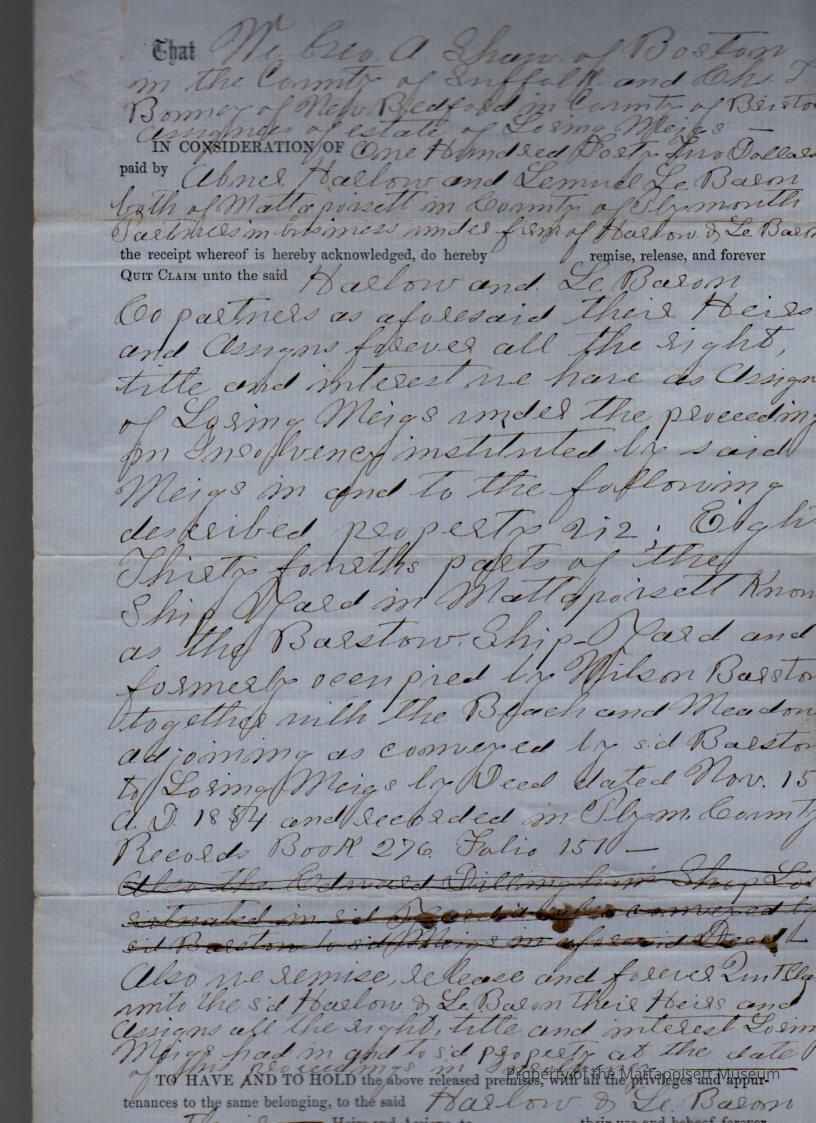 That We Geo. A Shaw of Boston
in the County of Suffolk and Chs. T.
Bonney of New Bedford in County of Bristo
Assignees of estate of Loring Meigs —
IN CONSIDERATION OF One Hundred Forty Two Dollars
paid by Abner Harlow and Lemuel Le Baron
both of Mattapoisett in County of Plymouth
Partners in business under firm of Harlow & Le Baro
the receipt whereof is hereby acknowledged, do hereby remise, release, and forever
QUIT CLAIM unto the said Harlow and Le Baron
Co partners as aforesaid their Heirs
and Assigns forever all the right,
title and interest we have as Assign
of Loring Meigs under the proceeding
in Insolvency instituted by said
Meigs in and to the following
described property viz; Eigh
Thirty fourths parts of the
Ship Yard in Mattapoisett Know
as the Barstow Ship-Yard and
formerly occupied by Wilson Barstow
together with the Beach and Meadow
adjoining as conveyed by sd Barstow
to Loring Meigs by Deed dated Nov. 15
A. D. 1854 and recorded in Plym. County
Records Book 276 Folio 151 —
Also the Edward Dillingham Shop Lot
situated in sd conveyed by
sd Barstow to sd Meigs in aforesaid Deed —
Also we remise, release and forever Quit Cla
unto the sd Harlow & Le Baron their Heirs and
Assigns all the right, title and interest Lorin
Meigs had in and to sd property at the date
of his proceedings in
Property of the Mattapoisett Museum
TO HAVE AND TO HOLD the above released premises, with all the privileges and appur-
tenances to the same belonging, to the said Harlow & Le Baron
Heirs and Assigns, to their use and behoof forever